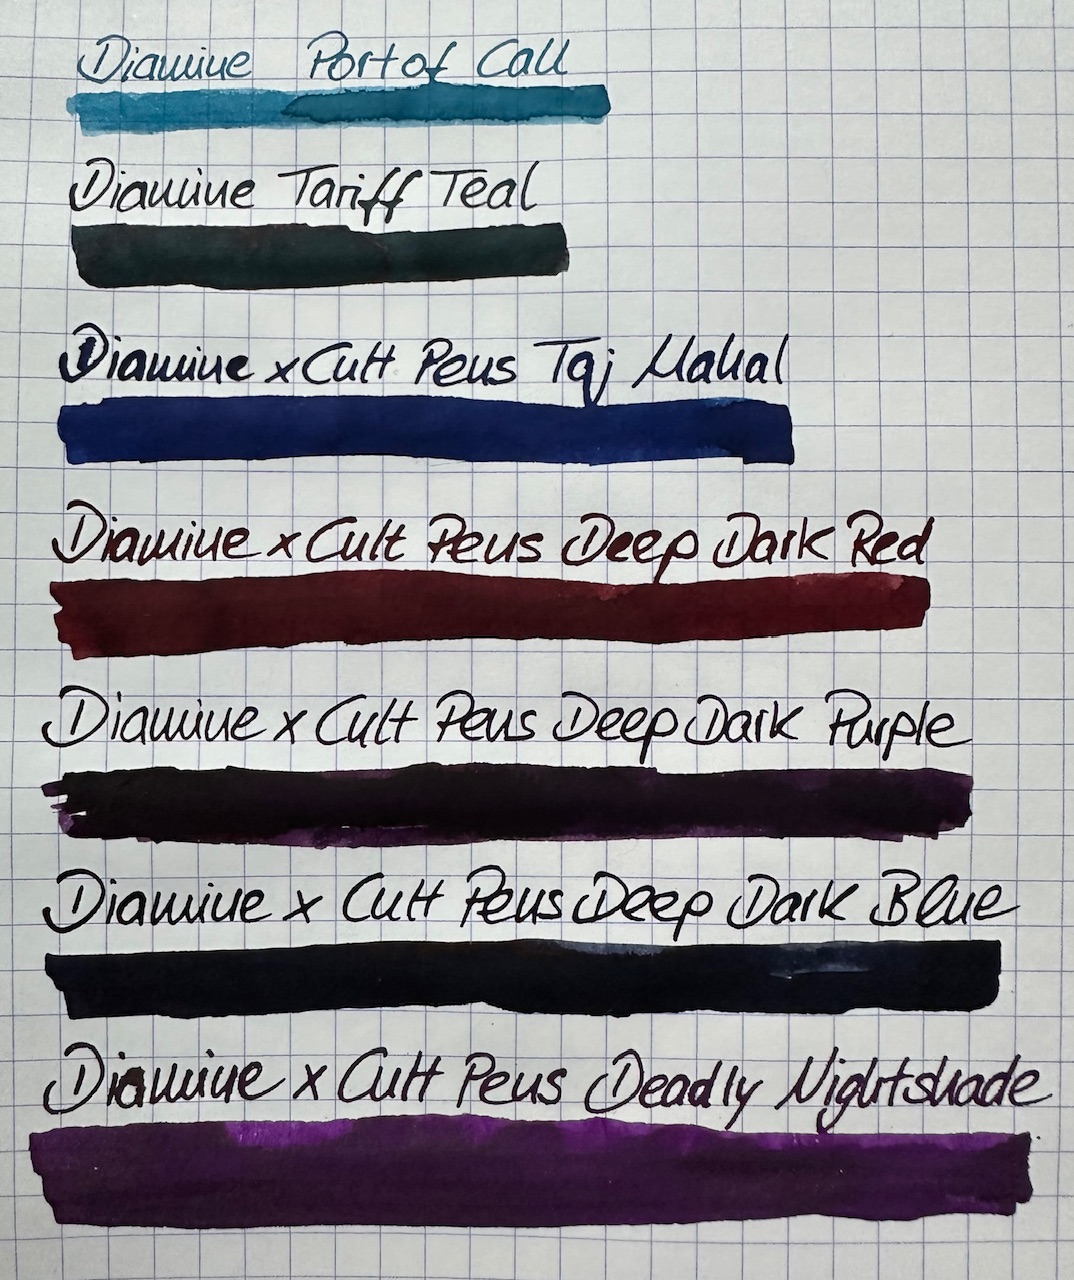 Diamine Port of Call
Diamine Tariff Teal
Diamine x Cult Pens Taj Mahal
Diamine x Cult Pens Deep Dark Red
Diamine x Cult Pens Deep Dark Purple
Diamine x Cult Pens Deep Dark Blue
Diamine x Cult Pens Deadly Nightshade